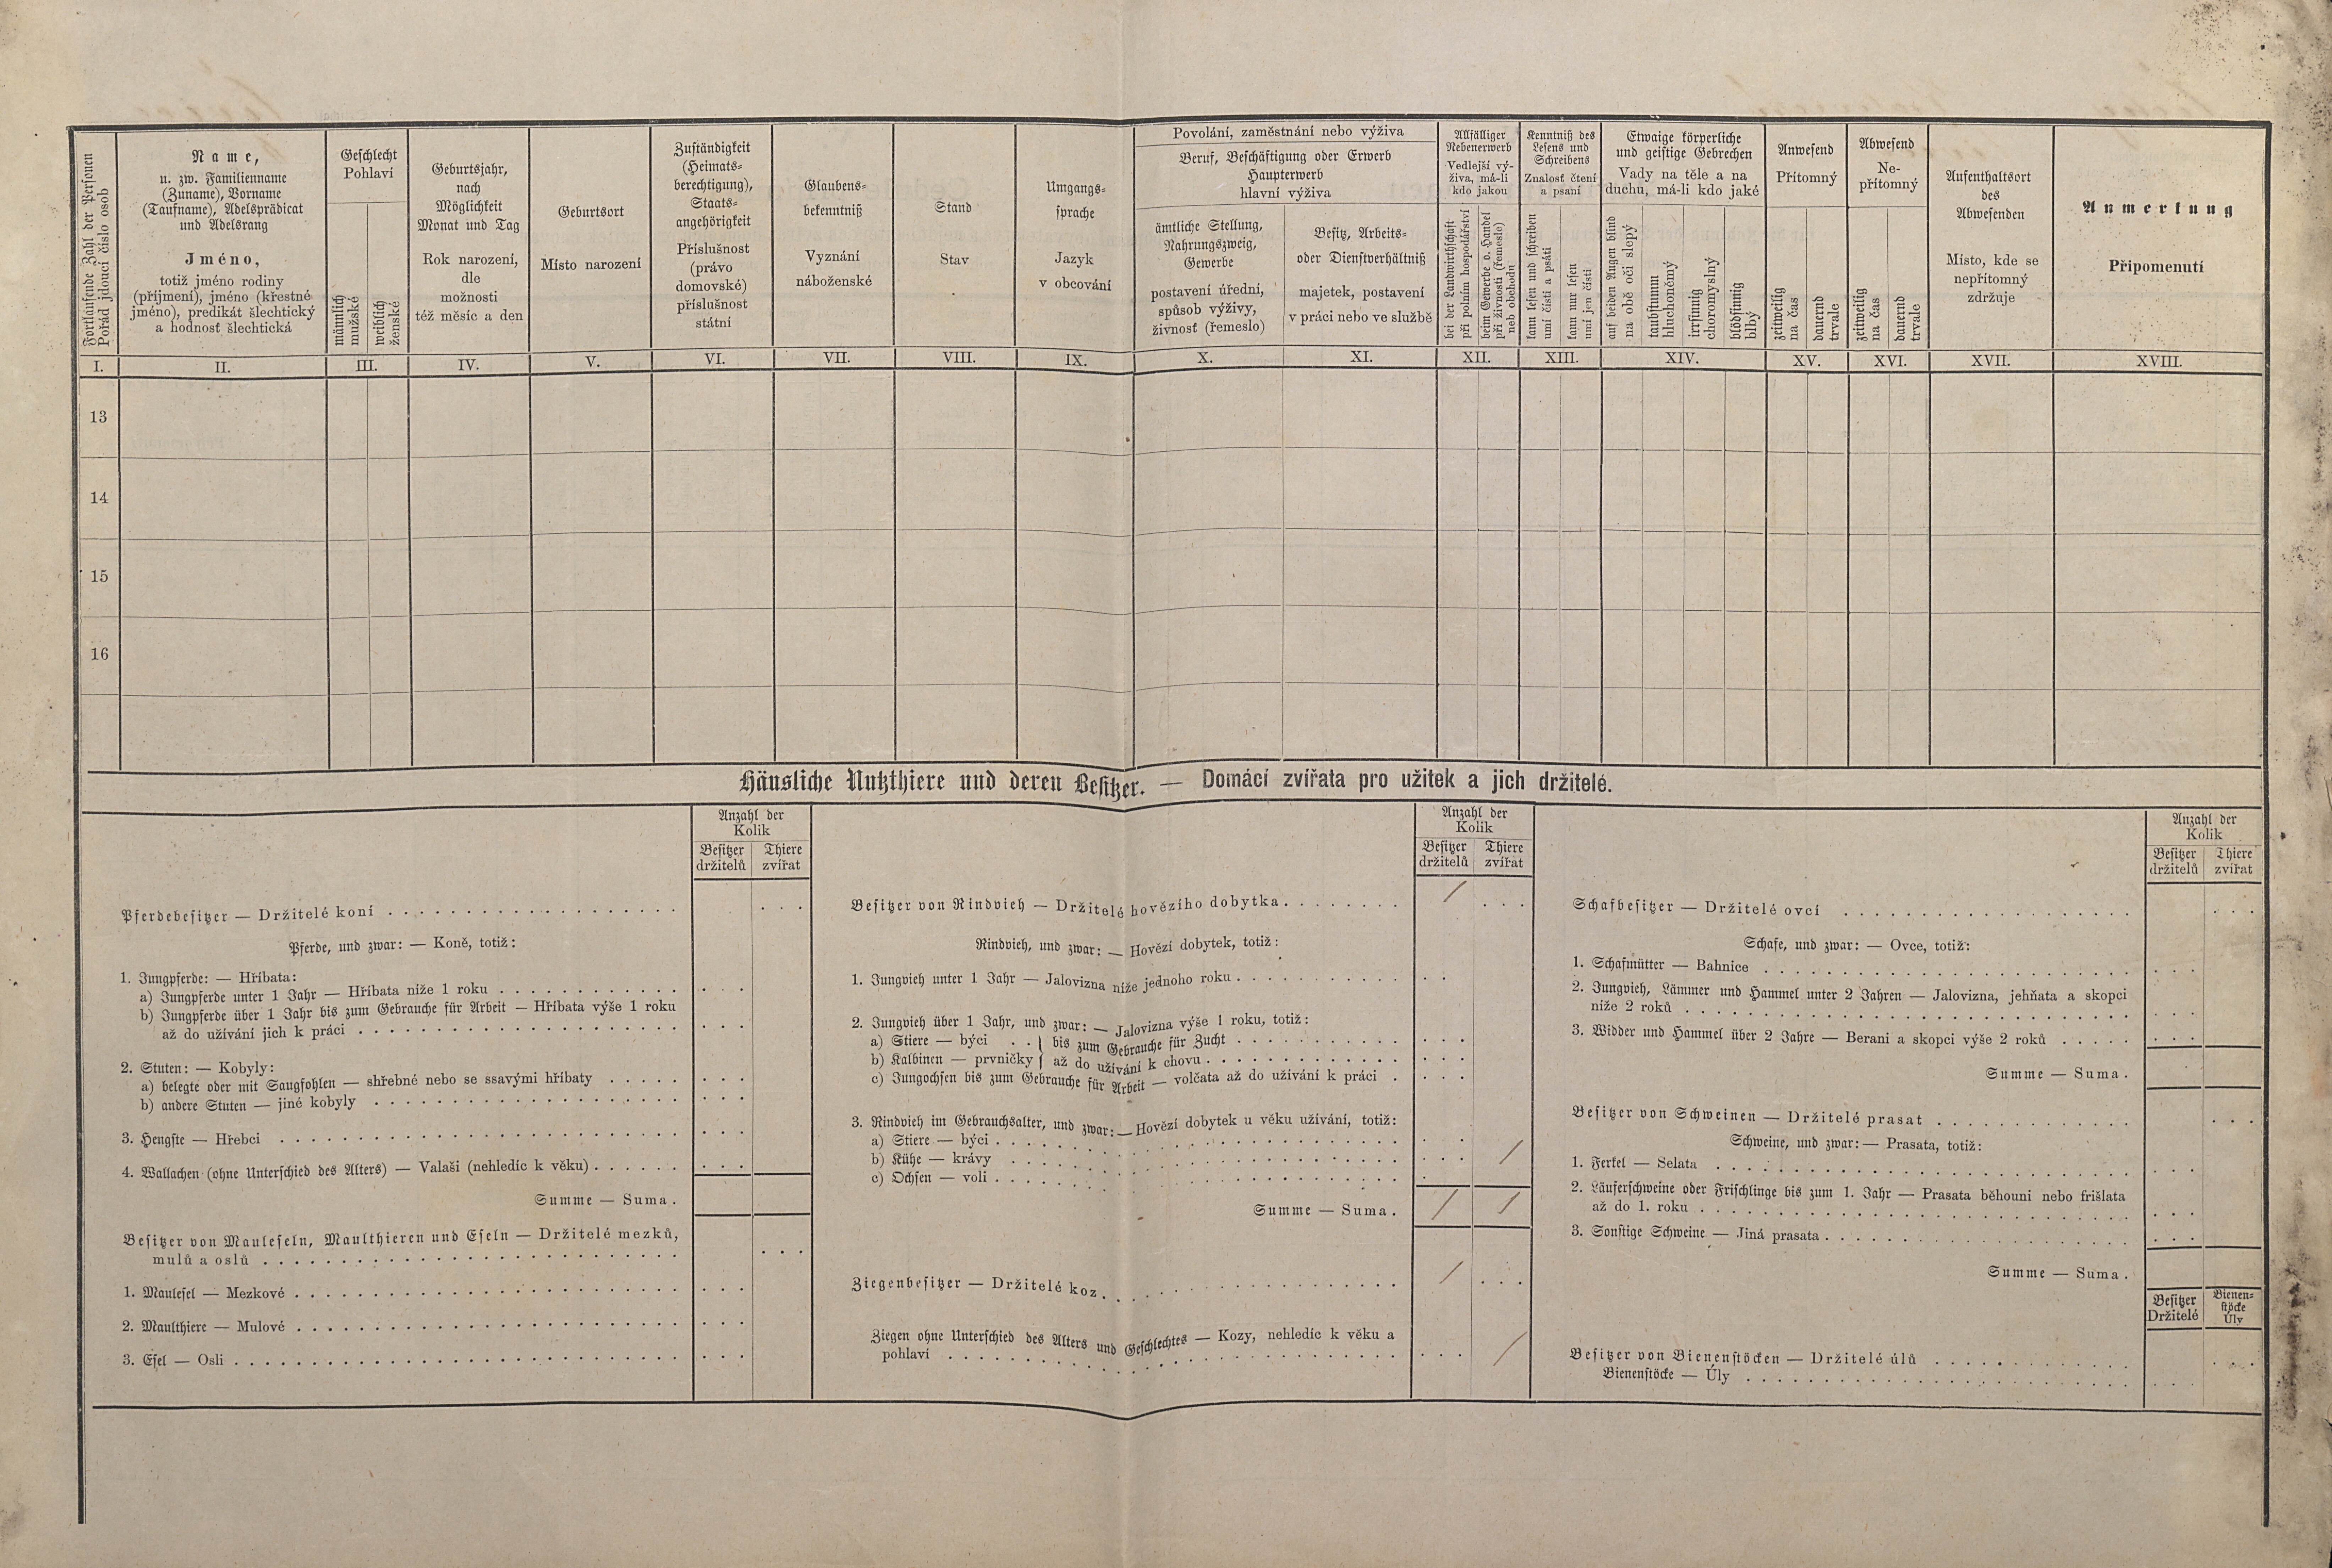 Fortlaufende Zahl der Personen
Pořád jdoucí číslo osob
Name,
u. zw. Familienname
(Zuname), Vorname
(Taufname), Adelsprädicat
und Adelsrang
Jméno,
totiž jméno rodiny
(příjmení), jméno (křestné
jméno), predikát šlechtický
a hodnosť šlechtická
Geschlecht
Pohlaví
männlich
mužské
weiblich
ženské
Geburtsjahr,
nach
Möglichkeit
Monat und Tag
Rok narození,
dle
možnosti
též měsíc a den
Geburtsort
Místo narození
Zuständigkeit
(Heimats-
berechtigung),
Staats-
angehörigkeit
Příslušnost
(právo
domovské)
příslušnost
státní
Glaubens-
bekenntniß
Vyznání
náboženské
Stand
Stav
Umgangs-
sprache
Jazyk
v obcování
Povolání, zaměstnání nebo výživa
Beruf, Beschäftigung oder Erwerb
Haupterwerb
hlavní výživa
ämtliche Stellung,
Nahrungszweig,
Gewerbe
postavení úřední,
spůsob výživy,
živnosť (řemeslo)
Besitz, Arbeits-
oder Dienstverhältniß
majetek, postavení
v práci nebo ve službě
Allfälliger
Nebenerwerb
Vedlejší vý-
živa, má-li
kdo jakou
bei der Landwirthschaft
při polním hospodářství
beim Gewerbe o. Handel
při živnosti (řemesle)
neb obchodu
Kenntniß des
Lesens und
Schreibens
Znalosť čtení
a psaní
kann lesen und schreiben
umí čísti a psáti
kann nur lesen
umí jen čísti
Etwaige körperliche
und geistige Gebrechen
Vady na těle a na
duchu, má-li kdo jaké
auf beiden Augen blind
na obě oči slepý
taubstumm
hluchoněmý
irrsinnig
choromyslný
blödsinnig
blbý
Anwesend
Přítomný
zeitweilig
na čas
dauernd
trvale
Abwesend
Ne-
přítomný
zeitweilig
na čas
dauernd
trvale
Aufenthaltsort
des
Abwesenden
Místo, kde se
nepřítomný
zdržuje
Anmerkung
Připomenutí
I. II. III. IV. V. VI. VII. VIII. IX. X. XI. XII. XIII. XIV. XV. XVI. XVII. XVIII.
13
14
15
16
Häusliche Nutzthiere und deren Besitzer. — Domácí zvířata pro užitek a jich držitelé.
Anzahl der
Kolik
Besitzer Thiere
držitelů zvířat
Pferdebesitzer — Držitelé koní
Pferde, und zwar: — Koně, totiž:
1. Jungpferde: — Hříbata:
a) Jungpferde unter 1 Jahr — Hříbata níže 1 roku
b) Jungpferde über 1 Jahr bis zum Gebrauche für Arbeit — Hříbata výše 1 roku
až do užívání jich k práci
2. Stuten: — Kobyly:
a) belegte oder mit Saugfohlen — shřebné nebo se ssavými hříbaty
b) andere Stuten — jiné kobyly
3. Hengste — Hřebci
4. Wallachen (ohne Unterschied des Alters) — Valaši (nehledíc k věku)
Summe — Suma.
Besitzer von Mauleseln, Maulthieren und Eseln — Držitelé mezků,
mulů a oslů
1. Maulesel — Mezkové
2. Maulthiere — Mulové
3. Esel — Osli
Anzahl der
Kolik
Besitzer Thiere
držitelů zvířat
Besitzer von Rindvieh — Držitelé hovězího dobytka. /
Rindvieh, und zwar: — Hovězí dobytek, totiž:
1. Jungvieh unter 1 Jahr — Jalovizna níže jednoho roku
2. Jungvieh über 1 Jahr, und zwar: — Jalovizna výše 1 roku, totiž:
a) Stiere — býci . . } bis zum Gebrauche für Zucht
b) Kalbinen — prvničky } až do užívání k chovu
c) Jungochsen bis zum Gebrauche für Arbeit — volčata až do užívání k práci
3. Rindvieh im Gebrauchsalter, und zwar: — Hovězí dobytek u věku užívání, totiž:
a) Stiere — býci
b) Kühe — krávy /
c) Ochsen — voli
Summe — Suma. / /
Ziegenbesitzer — Držitelé koz /
Ziegen ohne Unterschied des Alters und Geschlechtes — Kozy, nehledíc k věku a
pohlaví /
Anzahl der
Kolik
Besitzer Thiere
držitelů zvířat
Schafbesitzer — Držitelé ovcí
Schafe, und zwar: — Ovce, totiž:
1. Schafmütter — Bahnice
2. Jungvieh, Lämmer und Hammel unter 2 Jahren — Jalovizna, jehňata a skopci
níže 2 roků
3. Widder und Hammel über 2 Jahre — Berani a skopci výše 2 roků
Summe — Suma.
Besitzer von Schweinen — Držitelé prasat
Schweine, und zwar: — Prasata, totiž:
1. Ferkel — Selata
2. Läuferschweine oder Frischlinge bis zum 1. Jahr — Prasata běhouni nebo frišlata
až do 1. roku
3. Sonstige Schweine — Jiná prasata
Summe — Suma.
Besitzer
Držitelé
Bienen-
stöcke
Úly
Besitzer von Bienenstöcken — Držitelé úlů
Bienenstöcke — Úly